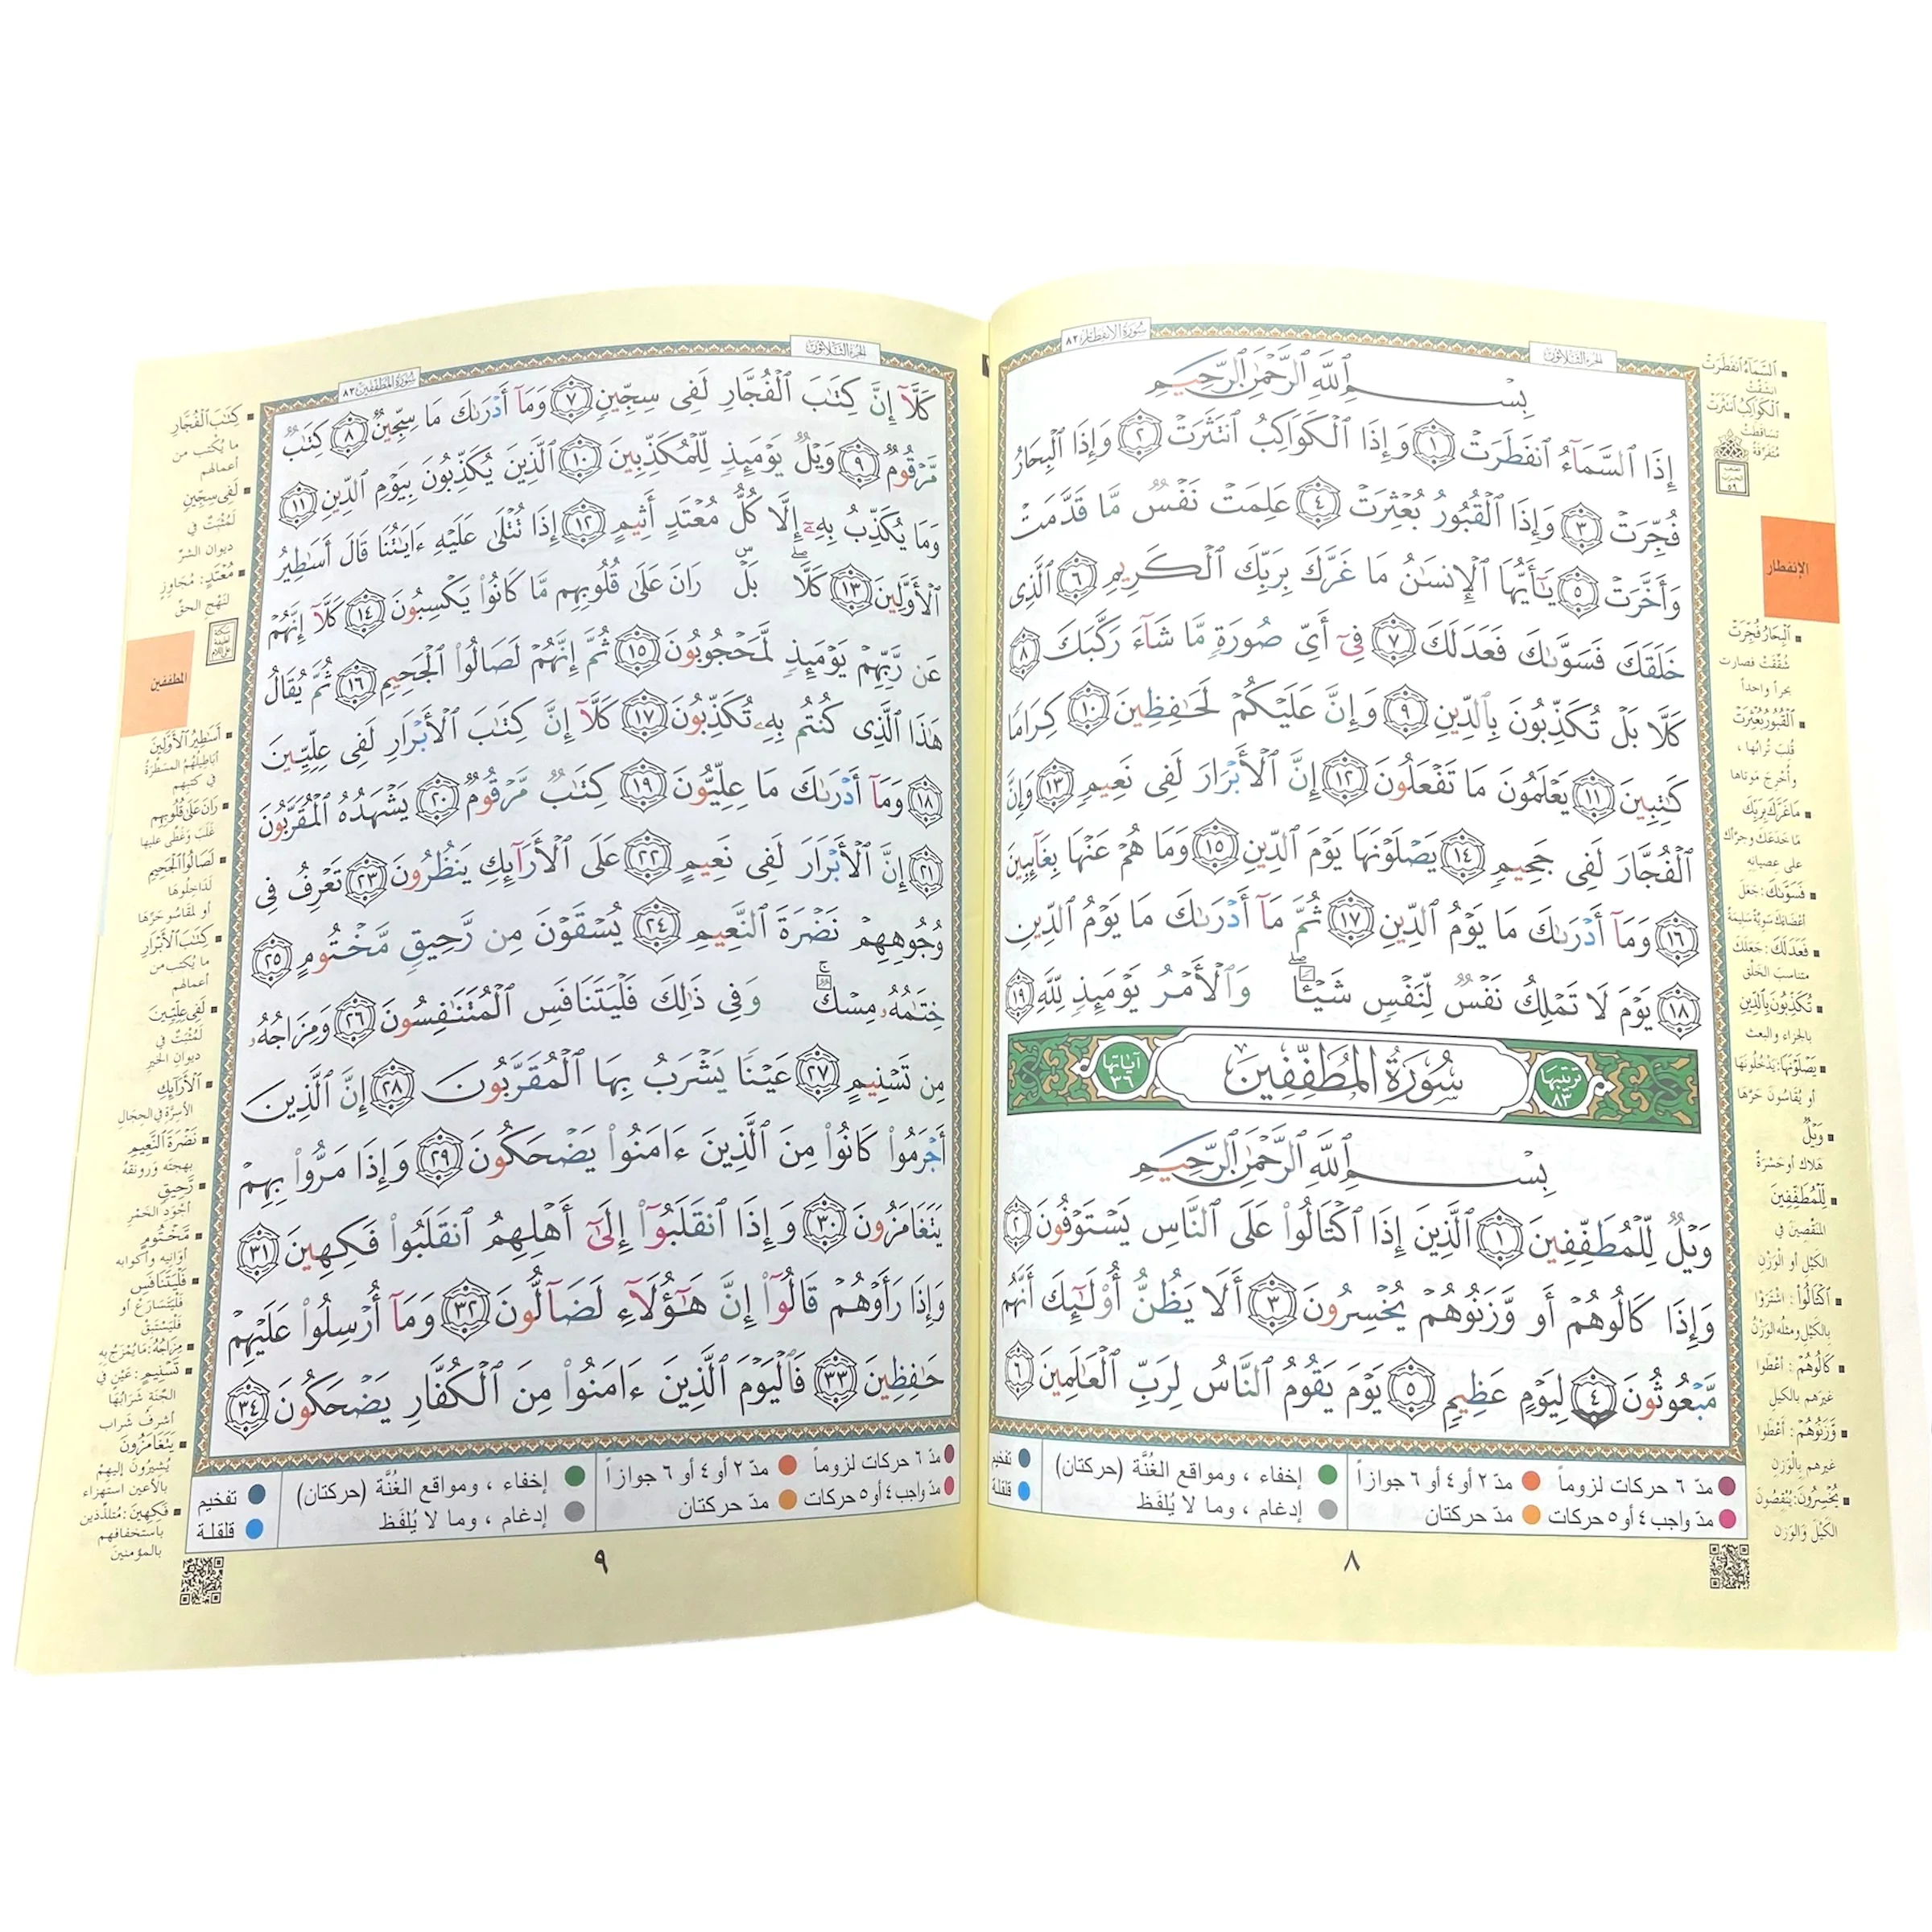 سُورَةُ الانفِطار ٨٢
الجزء الثلاثون
بِسْمِ ٱللَّهِ ٱلرَّحْمَٰنِ ٱلرَّحِيمِ
إِذَا ٱلسَّمَآءُ ٱنفَطَرَتْ ١ وَإِذَا ٱلْكَوَاكِبُ ٱنتَثَرَتْ ٢ وَإِذَا ٱلْبِحَارُ
فُجِّرَتْ ٣ وَإِذَا ٱلْقُبُورُ بُعْثِرَتْ ٤ عَلِمَتْ نَفْسٌ مَّا قَدَّمَتْ
وَأَخَّرَتْ ٥ يَٰٓأَيُّهَا ٱلْإِنسَٰنُ مَا غَرَّكَ بِرَبِّكَ ٱلْكَرِيمِ ٦ ٱلَّذِى
خَلَقَكَ فَسَوَّىٰكَ فَعَدَلَكَ ٧ فِىٓ أَىِّ صُورَةٍ مَّا شَآءَ رَكَّبَكَ ٨
كَلَّا بَلْ تُكَذِّبُونَ بِٱلدِّينِ ٩ وَإِنَّ عَلَيْكُمْ لَحَٰفِظِينَ ١٠ كِرَامًا
كَٰتِبِينَ ١١ يَعْلَمُونَ مَا تَفْعَلُونَ ١٢ إِنَّ ٱلْأَبْرَارَ لَفِى نَعِيمٍ ١٣ وَإِنَّ
ٱلْفُجَّارَ لَفِى جَحِيمٍ ١٤ يَصْلَوْنَهَا يَوْمَ ٱلدِّينِ ١٥ وَمَا هُمْ عَنْهَا بِغَآئِبِينَ
١٦ وَمَآ أَدْرَىٰكَ مَا يَوْمُ ٱلدِّينِ ١٧ ثُمَّ مَآ أَدْرَىٰكَ مَا يَوْمُ ٱلدِّينِ
١٨ يَوْمَ لَا تَمْلِكُ نَفْسٌ لِّنَفْسٍ شَيْـًٔا ۖ وَٱلْأَمْرُ يَوْمَئِذٍ لِّلَّهِ ١٩
ترتيبها ٨٣ سُورَةُ المُطَفِّفِينَ آياتها ٣٦
بِسْمِ ٱللَّهِ ٱلرَّحْمَٰنِ ٱلرَّحِيمِ
وَيْلٌ لِّلْمُطَفِّفِينَ ١ ٱلَّذِينَ إِذَا ٱكْتَالُوا۟ عَلَى ٱلنَّاسِ يَسْتَوْفُونَ ٢
وَإِذَا كَالُوهُمْ أَو وَّزَنُوهُمْ يُخْسِرُونَ ٣ أَلَا يَظُنُّ أُو۟لَٰٓئِكَ أَنَّهُم
مَّبْعُوثُونَ ٤ لِيَوْمٍ عَظِيمٍ ٥ يَوْمَ يَقُومُ ٱلنَّاسُ لِرَبِّ ٱلْعَٰلَمِينَ ٦
مدّ ٦ حركات لزوماً مدّ ٢ أو ٤ أو ٦ جوازاً إخفاء ، ومواقع الغُنَّة (حركتان) تفخيم
مدّ واجب ٤ أو ٥ حركات مدّ حركتان إدغام ، وما لا يُلفَظ قلقلة
٨
ٱلسَّمَآءُ ٱنفَطَرَتْ
انشقّتْ
ٱلْكَوَاكِبُ ٱنتَثَرَتْ
تساقطتْ
مُتفرّقةً
الانفطار
ٱلْبِحَارُ فُجِّرَتْ
شُقّقتْ فصارت
بحراً واحداً
ٱلْقُبُورُ بُعْثِرَتْ
قُلِبَ تُرابُها ،
وأُخرِجَ مَوتاها
مَا غَرَّكَ بِرَبِّكَ
مَا خَدَعَكَ وجرَّأك
على عصيانِه
فَسَوَّىٰكَ: جَعَلَ
أعضاءَكَ سويّةً سليمةً
فَعَدَلَكَ: جَعَلَكَ
متناسبَ الخَلْق
تُكَذِّبُونَ بِٱلدِّينِ
بالجزاء والبعث
يَصْلَوْنَهَا: يَدْخُلُونَهَا
أو يُقاسُونَ حَرَّهَا
وَيْلٌ
هلاك أو حَسْرَةٌ
لِّلْمُطَفِّفِينَ
المنقصين في
الكيل أو الوزن
ٱكْتَالُوا۟: اشتَرَوْا
بالكَيْلِ ومثلُه الوَزْنُ
كَالُوهُمْ: أَعْطَوا
غيرهم بالكيل
وَّزَنُوهُمْ: أَعْطَوا
غيرهم بالوَزنِ
يُخْسِرُونَ: يُنْقِصُونَ
الكَيْلَ وَالوَزن
سُورَةُ المطفّفين ٨٣
الجزء الثلاثون
كَلَّآ إِنَّ كِتَٰبَ ٱلْفُجَّارِ لَفِى سِجِّينٍ ٧ وَمَآ أَدْرَىٰكَ مَا سِجِّينٌ ٨ كِتَٰبٌ
مَّرْقُومٌ ٩ وَيْلٌ يَوْمَئِذٍ لِّلْمُكَذِّبِينَ ١٠ ٱلَّذِينَ يُكَذِّبُونَ بِيَوْمِ ٱلدِّينِ ١١
وَمَا يُكَذِّبُ بِهِۦٓ إِلَّا كُلُّ مُعْتَدٍ أَثِيمٍ ١٢ إِذَا تُتْلَىٰ عَلَيْهِ ءَايَٰتُنَا قَالَ أَسَٰطِيرُ
ٱلْأَوَّلِينَ ١٣ كَلَّا ۖ بَلْ ۜ رَانَ عَلَىٰ قُلُوبِهِم مَّا كَانُوا۟ يَكْسِبُونَ ١٤ كَلَّآ إِنَّهُمْ
عَن رَّبِّهِمْ يَوْمَئِذٍ لَّمَحْجُوبُونَ ١٥ ثُمَّ إِنَّهُمْ لَصَالُوا۟ ٱلْجَحِيمِ ١٦ ثُمَّ يُقَالُ
هَٰذَا ٱلَّذِى كُنتُم بِهِۦ تُكَذِّبُونَ ١٧ كَلَّآ إِنَّ كِتَٰبَ ٱلْأَبْرَارِ لَفِى عِلِّيِّينَ
١٨ وَمَآ أَدْرَىٰكَ مَا عِلِّيُّونَ ١٩ كِتَٰبٌ مَّرْقُومٌ ٢٠ يَشْهَدُهُ ٱلْمُقَرَّبُونَ
٢١ إِنَّ ٱلْأَبْرَارَ لَفِى نَعِيمٍ ٢٢ عَلَى ٱلْأَرَآئِكِ يَنظُرُونَ ٢٣ تَعْرِفُ فِى
وُجُوهِهِمْ نَضْرَةَ ٱلنَّعِيمِ ٢٤ يُسْقَوْنَ مِن رَّحِيقٍ مَّخْتُومٍ ٢٥
خِتَٰمُهُۥ مِسْكٌ ۚ وَفِى ذَٰلِكَ فَلْيَتَنَافَسِ ٱلْمُتَنَٰفِسُونَ ٢٦ وَمِزَاجُهُۥ
مِن تَسْنِيمٍ ٢٧ عَيْنًا يَشْرَبُ بِهَا ٱلْمُقَرَّبُونَ ٢٨ إِنَّ ٱلَّذِينَ
أَجْرَمُوا۟ كَانُوا۟ مِنَ ٱلَّذِينَ ءَامَنُوا۟ يَضْحَكُونَ ٢٩ وَإِذَا مَرُّوا۟ بِهِمْ
يَتَغَامَزُونَ ٣٠ وَإِذَا ٱنقَلَبُوٓا۟ إِلَىٰٓ أَهْلِهِمُ ٱنقَلَبُوا۟ فَكِهِينَ ٣١
وَإِذَا رَأَوْهُمْ قَالُوٓا۟ إِنَّ هَٰٓؤُلَآءِ لَضَآلُّونَ ٣٢ وَمَآ أُرْسِلُوا۟ عَلَيْهِمْ
حَٰفِظِينَ ٣٣ فَٱلْيَوْمَ ٱلَّذِينَ ءَامَنُوا۟ مِنَ ٱلْكُفَّارِ يَضْحَكُونَ ٣٤
مدّ ٦ حركات لزوماً مدّ ٢ أو ٤ أو ٦ جوازاً إخفاء ، ومواقع الغُنَّة (حركتان) تفخيم
مدّ واجب ٤ أو ٥ حركات مدّ حركتان إدغام ، وما لا يُلفَظ قلقلة
٩
كِتَٰبَ ٱلْفُجَّارِ
ما يُكتب من
أعمالهم
لَفِى سِجِّينٍ
لَمُثْبَتٌ في
ديوان الشرّ
مُعْتَدٍ: مُجَاوِزٍ
لنَهْجِ الحقّ
المطففين
أَسَٰطِيرُ ٱلْأَوَّلِينَ
أباطيلُهُمُ المسَطَّرَةُ
في كتبهم
رَانَ عَلَىٰ قُلُوبِهِم
غَلَبَ وَغَطَّى عليها
لَصَالُوا۟ ٱلْجَحِيمِ
لَدَاخِلُوهَا
أو لمُقَاسُو حَرِّهَا
كِتَٰبَ ٱلْأَبْرَارِ
ما يُكتب من
أعمالهم
لَفِى عِلِّيِّينَ
لَمُثْبَتٌ في
ديوانِ الخير
ٱلْأَرَآئِكِ
الأسِرّةِ في الحِجَالِ
نَضْرَةَ ٱلنَّعِيمِ
بهجتَه وَرونقَهُ
رَّحِيقٍ
أجْوَدِ الخَمْرِ
مَّخْتُومٍ
أوانيه وأكوابه
فَلْيَتَنَافَسِ
فَلْيَتَسَارَعْ أو
فليَستَبِقْ
مِزَاجُهُ: مَا يُمْزَجُ بِهِ
تَسْنِيمٍ: عَيْنٍ في
الجَنّةِ شَرابُهَا
أشرفُ شَراب
يَتَغَامَزُونَ
يُشيرُونَ إليهمْ
بالأعين استهزاء
فَكِهِينَ: مُتلذّذين
باستخفافهم
بالمؤمنين